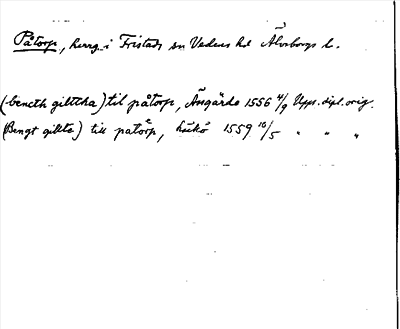 Påtorp, herrg. i Fristads sn Vedens hd Älvsborgs l.
(bencth gilttha) til påtorp, Åsgärde 1556 4/9 Upps. dipl. orig.
(Bengt gilta) till patorp, 1559 10/5 " " "